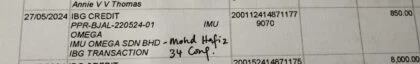 Annie V V Thomas
27/05/2024 IBG CREDIT 200112414871177 850.00
PPR-BJAL-220524-01 IMU 9070
OMEGA
IMU OMEGA SDN BHD - Mohd Hafiz
IBG TRANSACTION 34 Conf.
200152414875 8,000.0